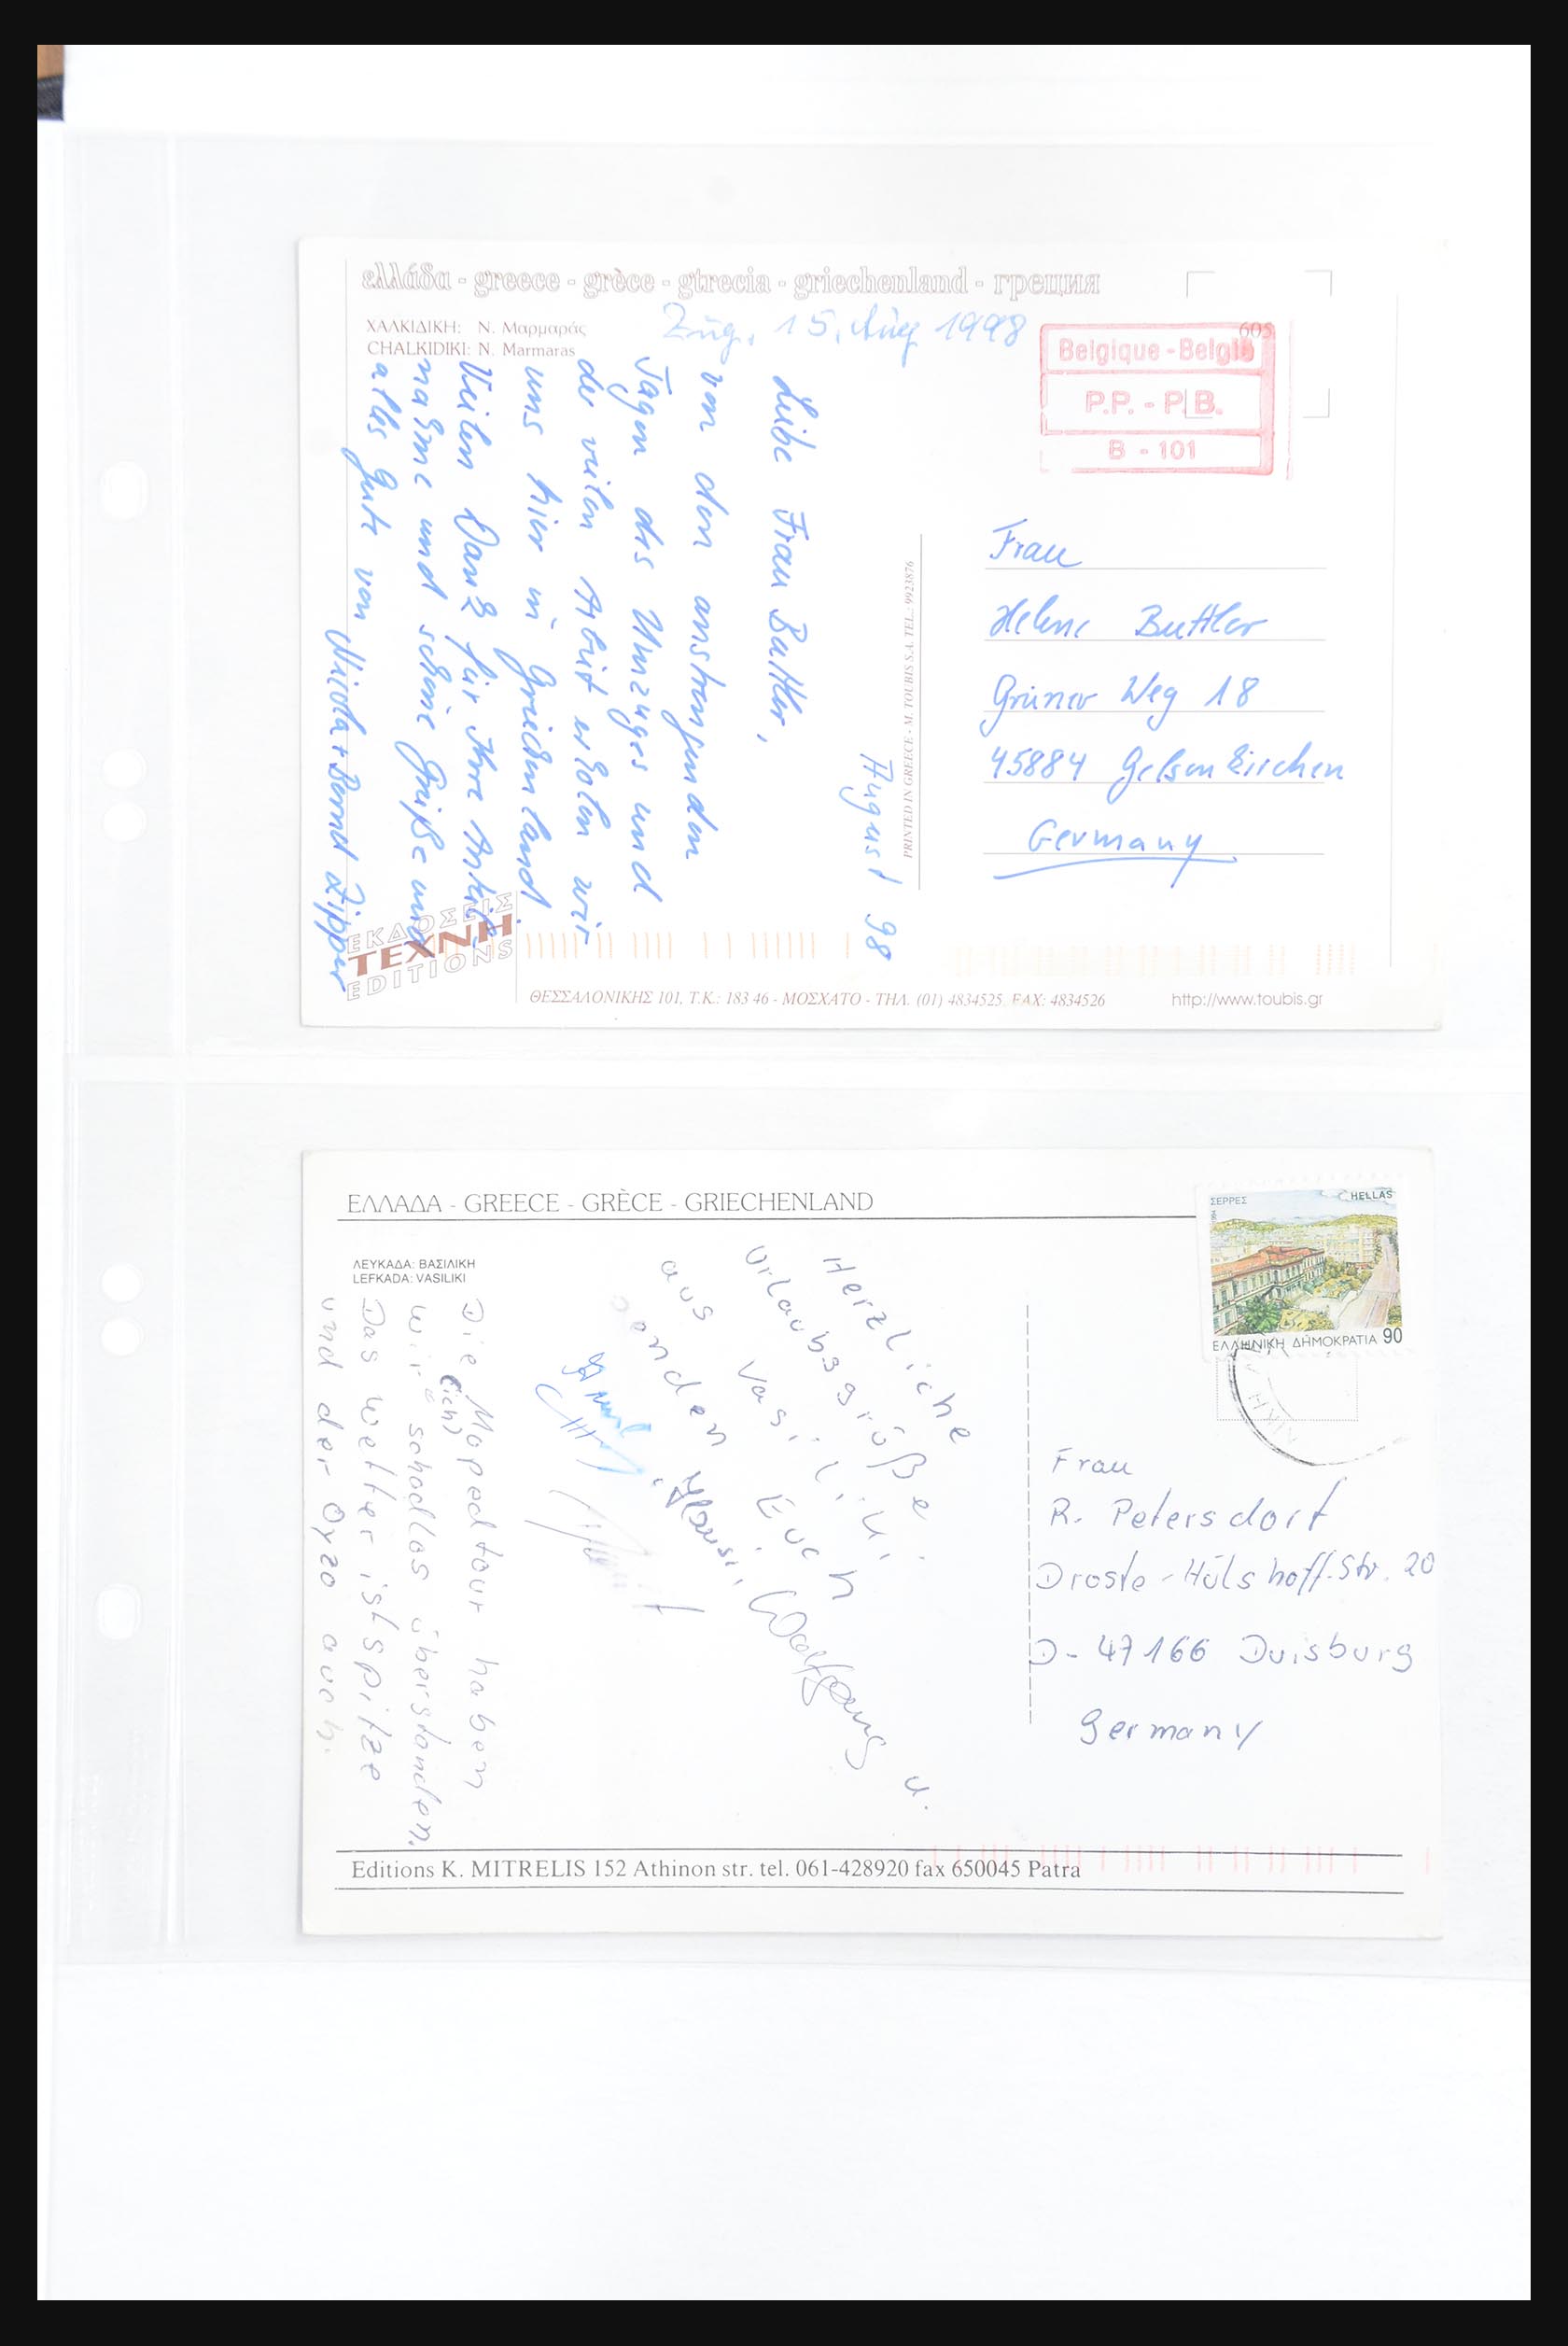 ελλάδα - greece - grèce - gtrecia - griechenland - греция
ΧΑΛΚΙΔΙΚΗ: Ν. Μαρμαράς
CHALKIDIKI: N. Marmaras
Zug. 15. Aug 1998
605
Belgique - België
P.P. - P.B.
B - 101
August 98
Liebe Frau Buttler,
von den anstrengenden
Tagen des Umzuges und
der vielen Arbeit erholen wir
uns hier in Griechenland
Vielen Dank für Ihre Anteil-
nahme und schöne Grüße und
alles Gute von
Nicola + Bernd Zipper
PRINTED IN GREECE - M. TOUBIS S.A. TEL.: 9923876
Frau
Helene Buttler
Grüner Weg 18
45884 Gelsenkirchen
Germany
ΕΚΔΟΣΕΙΣ
ΤΕΧΝΗ
EDITIONS
ΘΕΣΣΑΛΟΝΙΚΗΣ 101, Τ.Κ.: 183 46 - ΜΟΣΧΑΤΟ - ΤΗΛ. (01) 4834525, FAX: 4834526
http://www.toubis.gr
ΕΛΛΑΔΑ - GREECE - GRÈCE - GRIECHENLAND
ΛΕΥΚΑΔΑ: ΒΑΣΙΛΙΚΗ
LEFKADA: VASILIKI
ΣΕΡΡΕΣ
HELLAS
ΕΛΛΗΝΙΚΗ ΔΗΜΟΚΡΑΤΙΑ 90
Herzliche
Urlaubsgrüße
aus Vasiliki
senden Euch
Hansi, Wolfgang u.
Die Mopedtour haben
wir (ich) schadlos überstanden.
Das Wetter ist spitze
und der Oyzo auch.
Frau
R. Petersdorf
Droste-Hülshoff-Str. 20
D-47166 Duisburg
Germany
Editions K. MITRELIS 152 Athinon str. tel. 061-428920 fax 650045 Patra